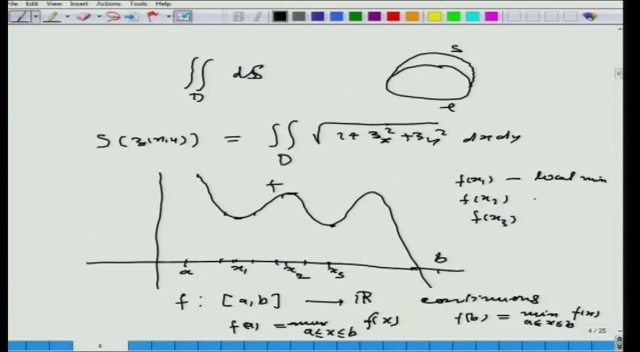 File Edit View Insert Actions Tools Help
∬_D dS
S
S(z(x,y)) = ∬_D √(1+z_x²+z_y²) dxdy
f(x₁) — local min
f(x₂)
f(x₃)
f
a x₁ x₂ x₃ b
f : [a,b] → ℝ continuous
f(a) = max_{a≤x≤b} f(x) f(b) = min_{a≤x≤b} f(x)
4
4 / 25